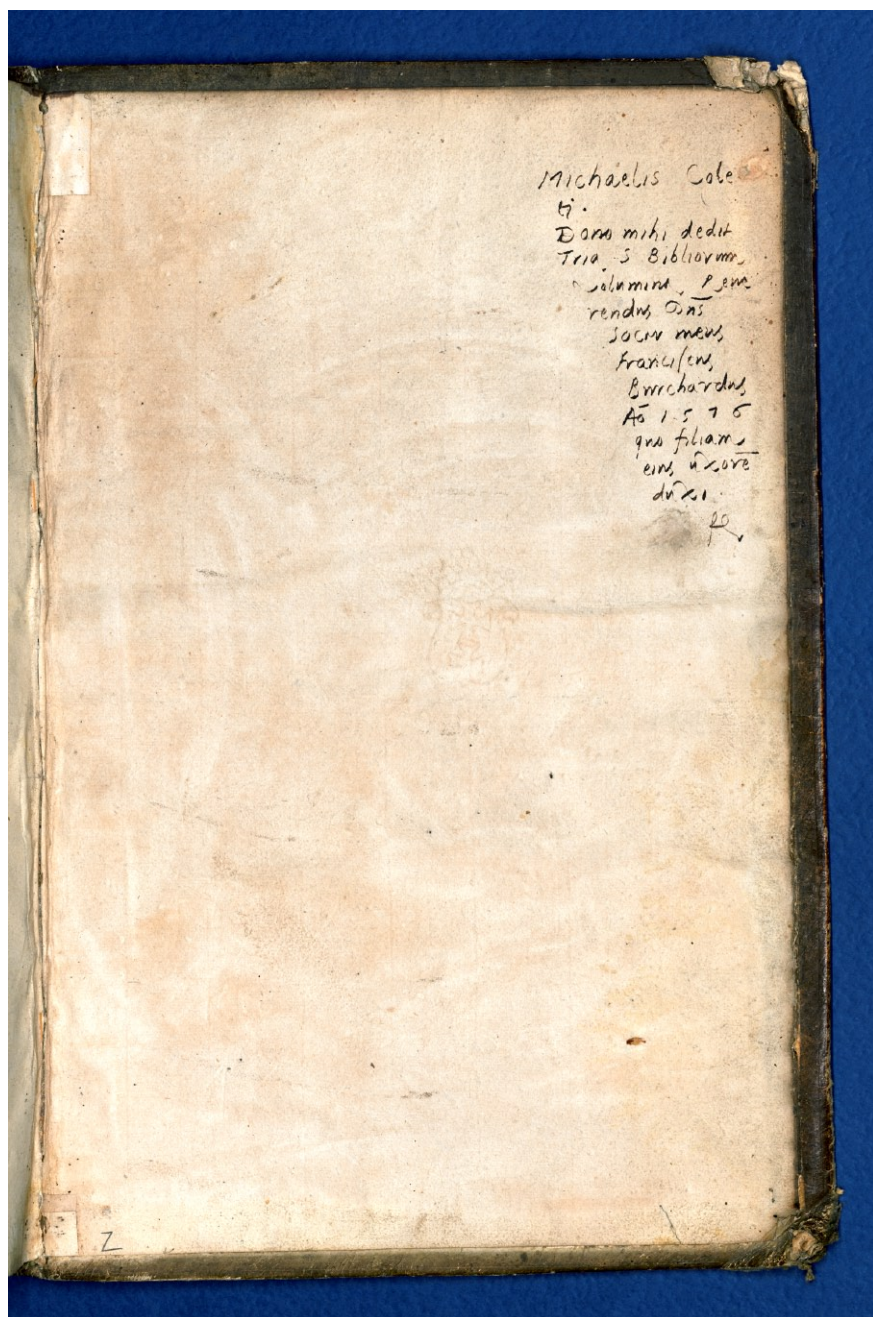 Michaelis Cole
tj.
Dono mihi dedit
Tria S Bibliorum
Volumina, Reue
rendus Dn̄s
socer meus
Franciſcus
Burchardus
Aō 1576
quo filiam
eius ŭxorē
dŭxi.
Z